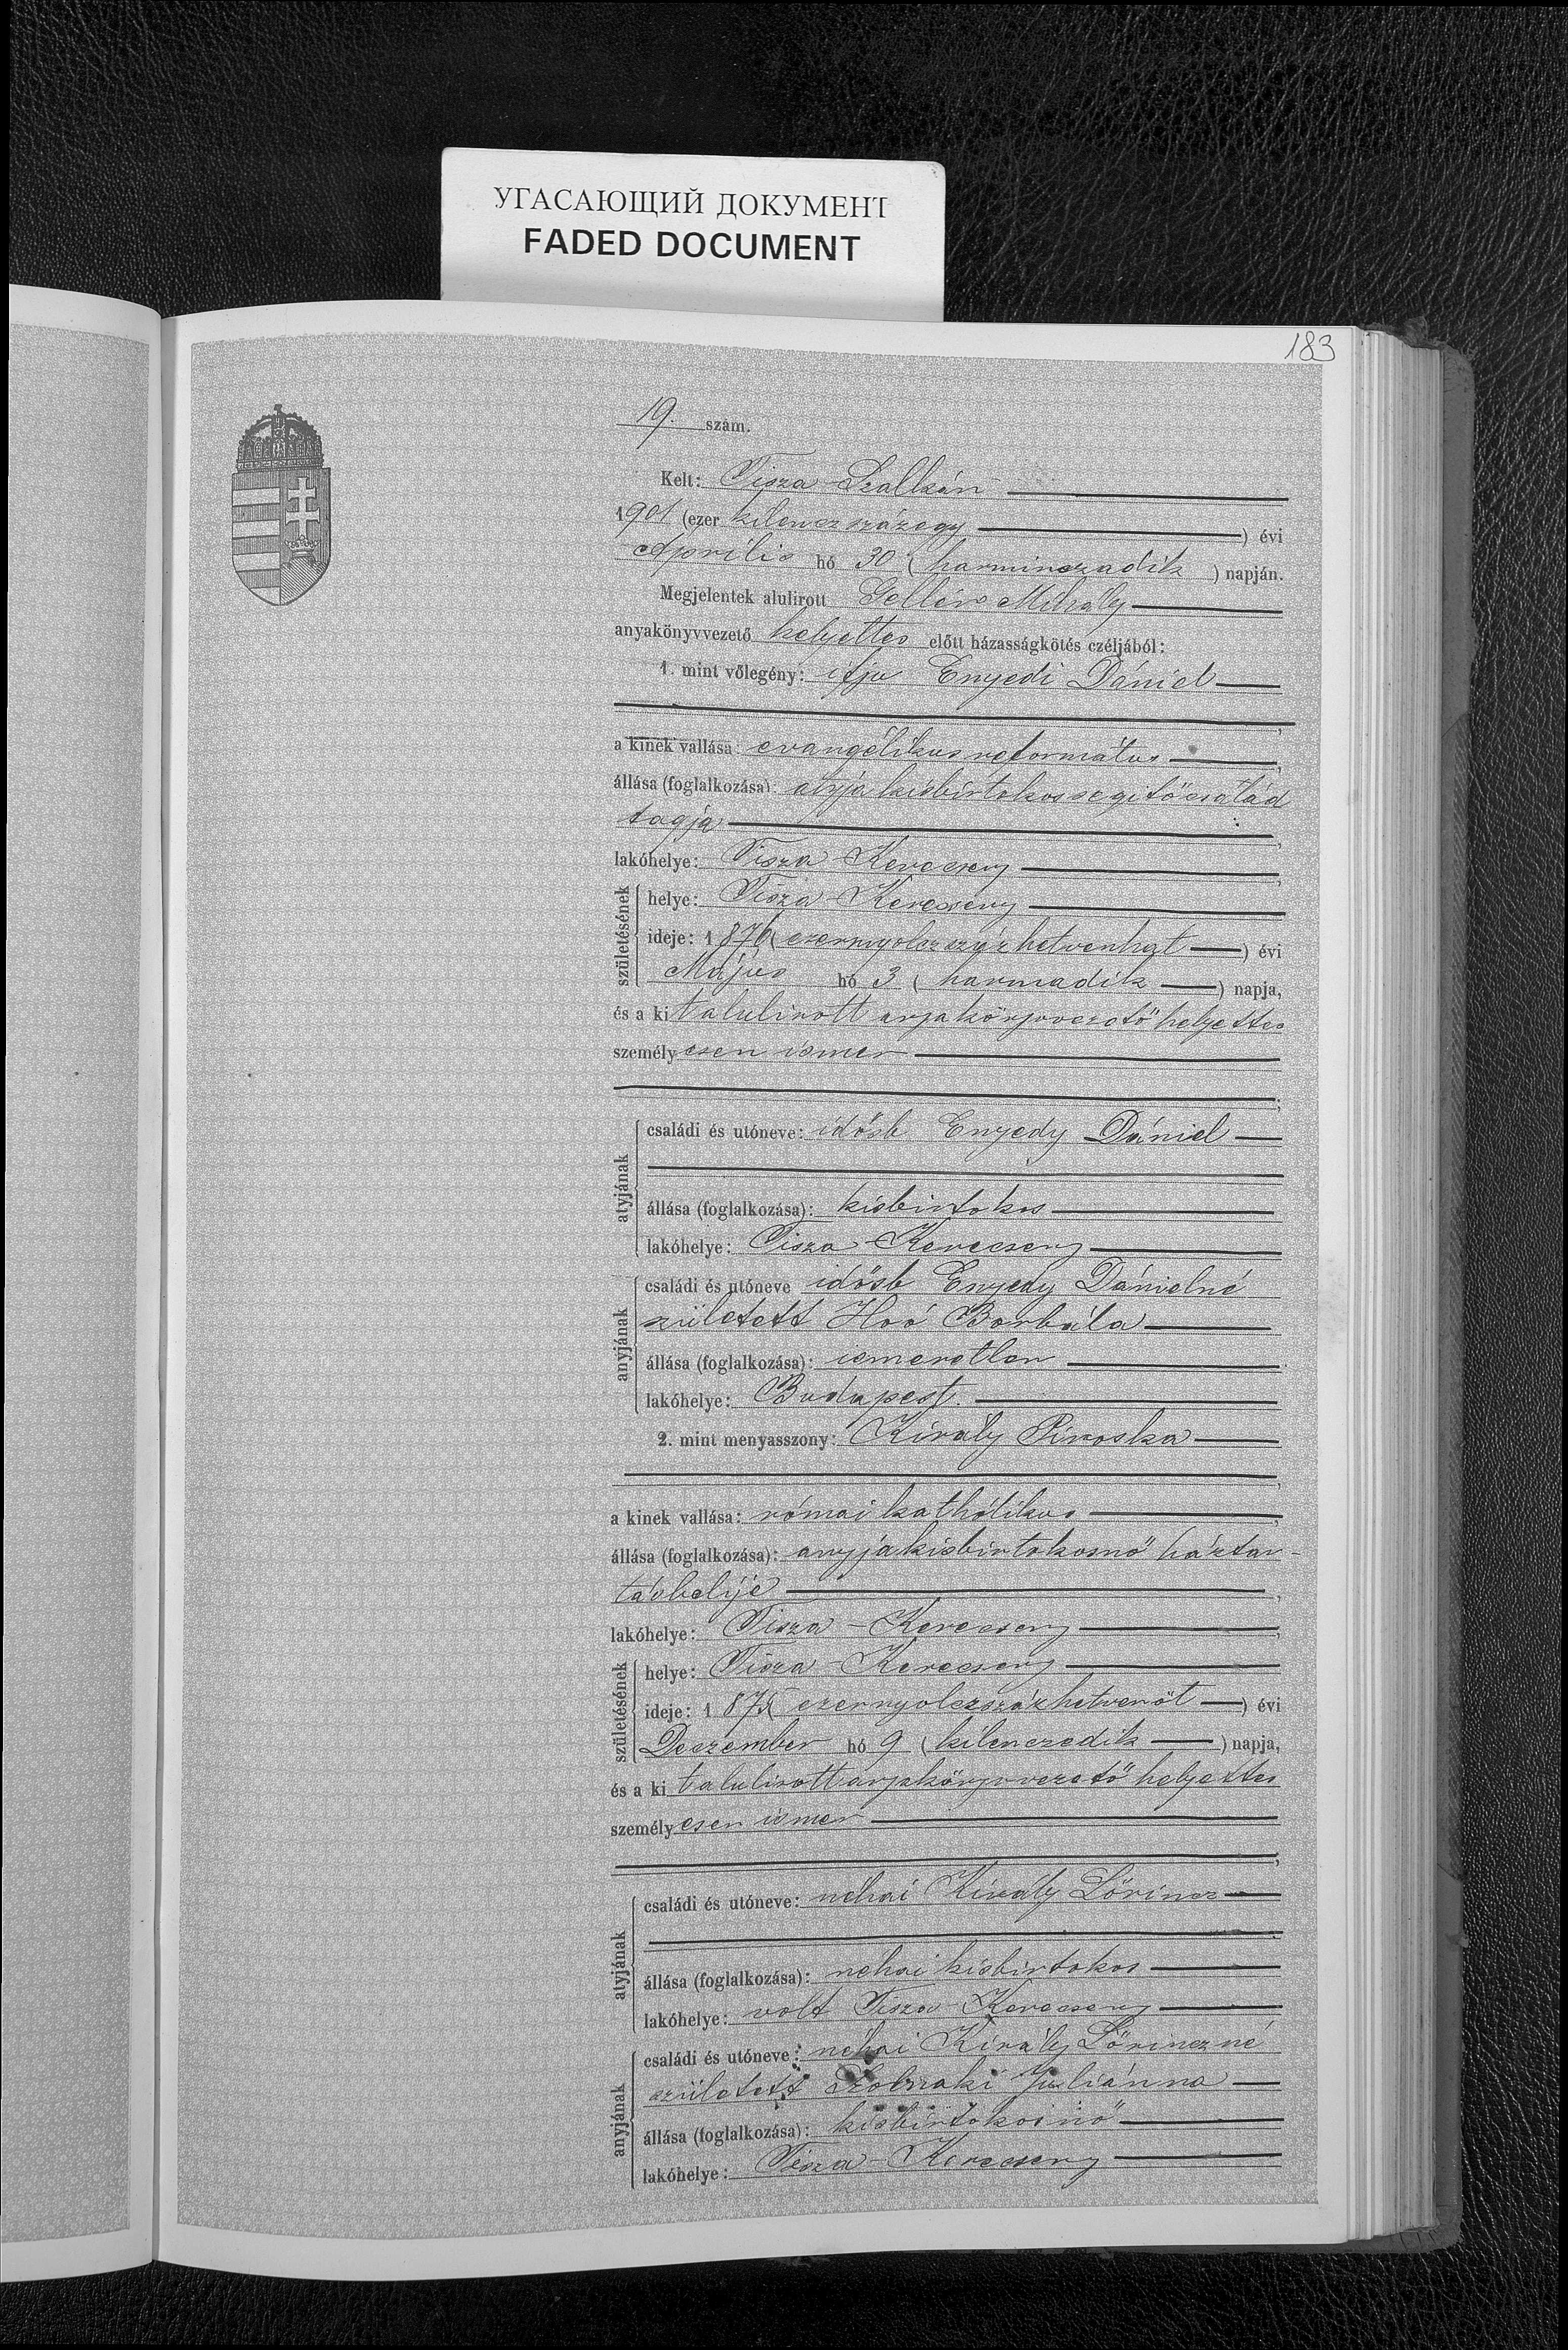 УГАСАЮЩИЙ ДОКУМЕНТ
FADED DOCUMENT
183
19. szám.
Kelt: Tisza-Szalkán
1901 (ezer kilenczszázegy ) évi
Április hó 30 (harminczadik ) napján.
Megjelentek alulirott Gellér Mihály
anyakönyvvezető helyettes előtt házasságkötés czéljából:
1. mint vőlegény: ifju Enyedi Dániel
a kinek vallása: evangélikus református
állása (foglalkozása): atyja kisbirtokos segitő család
tagja
lakóhelye: Tisza-Kerecseny
születésének
helye: Tisza-Kerecseny
ideje: 1876 (ezernyolczszázhetvenhat ) évi
Május hó 3 (harmadik ) napja,
és a kit alulirott anyakönyvvezető helyettes
személyesen ismer
atyjának
családi és utóneve: idősb Enyedy Dániel
állása (foglalkozása): kisbirtokos
lakóhelye: Tisza-Kerecseny
anyjának
családi és utóneve idősb Enyedy Dánielné
született Hoó Borbála
állása (foglalkozása): ismeretlen
lakóhelye: Budapest.
2. mint menyasszony: Király Piroska
a kinek vallása: római katholikus
állása (foglalkozása): anyja kisbirtokosnő háztar-
tásbelije
lakóhelye: Tisza-Kerecseny
születésének
helye: Tisza-Kerecseny
ideje: 1875 (ezernyolczszázhetvenöt ) évi
Deczember hó 9 (kilenczedik ) napja,
és a kit alulirott anyakönyvvezető helyettes
személyesen ismer
atyjának
családi és utóneve: néhai Király Lőrincz
állása (foglalkozása): néhai kisbirtokos
lakóhelye: volt Tisza-Kerecseny
anyjának
családi és utóneve: néhai Király Lőrinczné
született Juliánna
állása (foglalkozása): kisbirtokosnő
lakóhelye: Tisza-Kerecseny